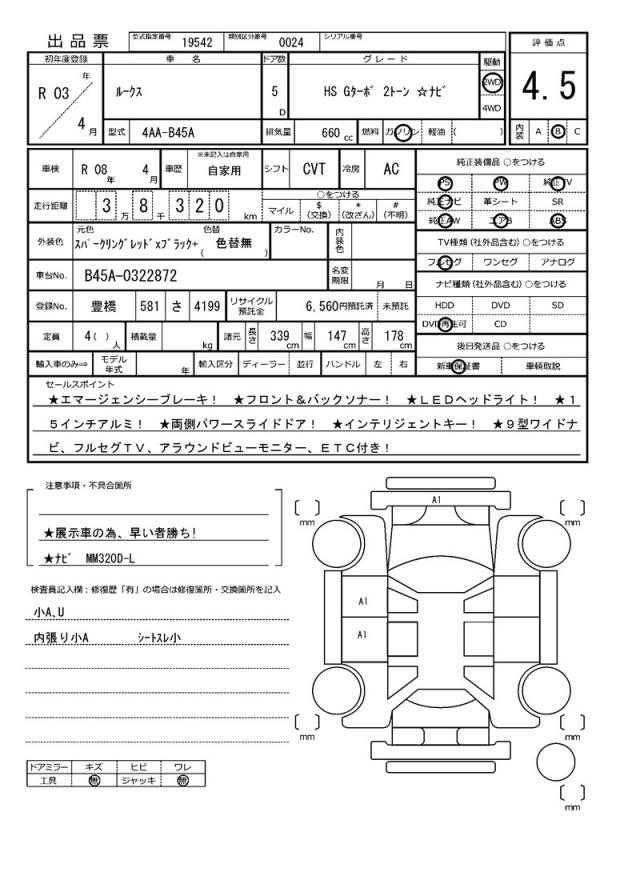 出品票 型式指定番号 19542 類別区分番号 0024 シリアル番号
評価点
4.5
内装 A B C
初年度登録 車名 ドア数 グレード 駆動
R 03 年 4 月 ルークス 5 D HS Gターボ 2トーン ☆ナビ 2WD 4WD
型式 4AA-B45A 排気量 660 cc 燃料 ガソリン 軽油 ( )
車検 R 08 年 4 月 車歴 ※未記入は自家用 自家用 シフト CVT 冷房 AC
純正装備品 ○をつける
PS PW 純正TV
純正ナビ 革シート SR
純正AW エアB ABS
走行距離 3 万 8 千 3 2 0 km
○をつける
マイル $(交換) *(改ざん) #(不明)
TV種類(社外品含む)○をつける
フルセグ ワンセグ アナログ
外装色 元色 スパークリングレッドxブラック+ 色替 ( 色替無 ) カラーNo. 内装色
車台No. B45A-0322872 名変期限 月 日
ナビ種類(社外品含む)○をつける
HDD DVD SD
DVD再生可 CD
登録No. 豊橋 581 さ 4199 リサイクル預託金 6,560円預託済 未預託
定員 4( )人 積載量 kg 諸元 長さ 339 cm 幅 147 cm 高さ 178 cm
後日発送品 ○をつける
新車保証書 車輌取説
輸入車のみ⇒ モデル年式 年 輸入区分 ディーラー 並行 ハンドル 左 右
セールスポイント
★エマージェンシーブレーキ! ★フロント&バックソナー! ★LEDヘッドライト! ★1
5インチアルミ! ★両側パワースライドドア! ★インテリジェントキー! ★9型ワイドナ
ビ、フルセグTV、アラウンドビューモニター、ETC付き!
注意事項・不具合箇所
★展示車の為、早い者勝ち!
★ナビ MM320D-L
検査員記入欄:修復歴「有」の場合は修復箇所・交換箇所を記入
小A、U
内張り小A シートスレ小
ドアミラー キズ ヒビ ワレ
工具 無 ジャッキ 無
A1
[ ] mm
[ ] mm
A1
A1
[ ] mm
[ ] mm
[ ] mm